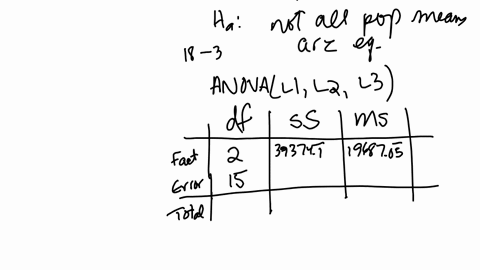 Ha: not all pop means
18-3 are eq.
ANOVA(L1, L2, L3)
df SS MS
Fact 2 39374.1 19687.05
Error 15
Total